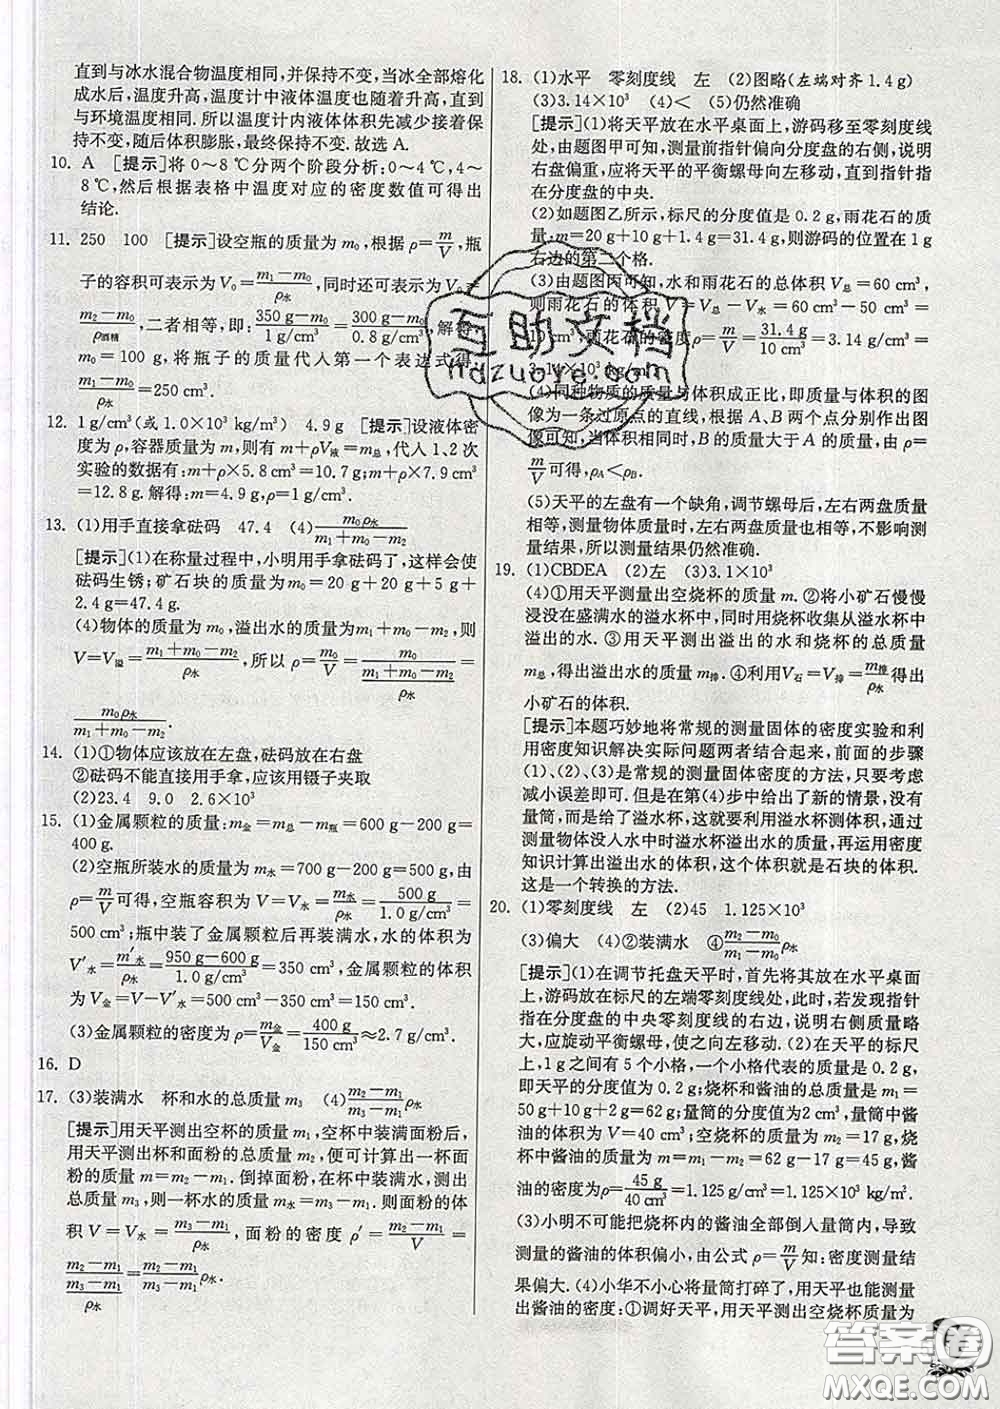 直到与冰水混合物温度相同,并保持不变,当冰全部熔化
成水后,温度升高,温度计中液体温度也随着升高,直到
与环境温度相同.所以温度计内液体体积先减少接着保
持不变,随后体积膨胀,最终保持不变.故选A.
10. A [提示]将0～8℃分两个阶段分析:0～4℃,4～
8℃,然后根据表格中温度对应的密度数值可得出
结论.
11. 250 100 [提示]设空瓶的质量为m₀,根据ρ=m/V,瓶
子的容积可表示为V₀=(m₁−m₀)/ρ水,同时还可表示为V₀=
(m₂−m₀)/ρ酒精,二者相等,即:(350 g−m₀)/(1 g/cm³)=(300 g−m₀)/(0.8 g/cm³),解得
m₀=100 g,将瓶子的质量代入第一个表达式得,
(m₁−m₀)/ρ水=250 cm³.
12. 1 g/cm³(或1.0×10³ kg/m³) 4.9 g [提示]设液体密
度为ρ,容器质量为m,则有m+ρV液=m总,代入1、2次
实验的数据有:m+ρ×5.8 cm³=10.7 g;m+ρ×7.9 cm³
=12.8 g.解得:m=4.9 g,ρ=1 g/cm³.
13. (1)用手直接拿砝码 47.4 (4)m₀ρ水/(m₁+m₀−m₂)
[提示](1)在称量过程中,小明用手拿砝码,这样会使
砝码生锈;矿石块的质量为m₀=20 g+20 g+5 g+
2.4 g=47.4 g.
(4)物体的质量为m₀,溢出水的质量为m₁+m₀−m₂,则
V=V溢=(m₁+m₀−m₂)/ρ水,所以ρ=m/V=m₀/((m₁+m₀−m₂)/ρ水)=
m₀ρ水/(m₁+m₀−m₂).
14. (1)①物体应该放在左盘,砝码放在右盘
②砝码不能直接用手拿,应该用镊子夹取
(2)23.4 9.0 2.6×10³
15. (1)金属颗粒的质量:m金=m总−m瓶=600 g−200 g=
400 g.
(2)空瓶所装水的质量为m水=700 g−200 g=500 g,由
ρ=m/V可得,空瓶容积为V=V水=m水/ρ水=500 g/(1.0 g/cm³)=
500 cm³;瓶中装了金属颗粒后再装满水,水的体积为
V′水=m′水/ρ水=(950 g−600 g)/(1.0 g/cm³)=350 cm³,金属颗粒的体积
为V金=V−V′水=500 cm³−350 cm³=150 cm³.
(3)金属颗粒的密度为ρ=m金/V金=400 g/150 cm³≈2.7 g/cm³.
16. D
17. (3)装满水 杯和水的总质量m₃ (4)(m₂−m₁)/(m₃−m₁)ρ水
[提示]用天平测出空杯的质量m₁,空杯中装满面粉后,
用天平测出杯和面粉的总质量m₂,便可计算出一杯面
粉的质量m=m₂−m₁.倒掉面粉,在杯中装满水,测出
总质量m₃,则一杯水的质量m水=m₃−m₁.则面粉的体
积V=V水=(m₃−m₁)/ρ水,面粉的密度ρ′=(m₂−m₁)/V=
(m₂−m₁)/((m₃−m₁)/ρ水)=(m₂−m₁)/(m₃−m₁)ρ水.
18. (1)水平 零刻度线 左 (2)图略(左端对齐1.4 g)
(3)3.14×10³ (4)< (5)仍然准确
[提示](1)将天平放在水平桌面上,游码移至零刻度线
处,由题图甲可知,测量前指针偏向分度盘的右侧,说明
右盘偏重,应将天平的平衡螺母向左移动,直到指针指
在分度盘的中央.
(2)如题图乙所示,标尺的分度值是0.2 g,雨花石的质
量:m=20 g+10 g+1.4 g=31.4 g,则游码的位置在1 g
右边的第二个格.
(3)由题图丙可知,水和雨花石的总体积V总=60 cm³,
则雨花石的体积V=V总−V水=60 cm³−50 cm³=
10 cm³,雨花石的密度ρ=m/V=31.4 g/10 cm³=3.14 g/cm³=
3.14×10³ kg/m³.
(4)同种物质的质量与体积成正比,即质量与体积的图
像为一条过原点的直线,根据A、B两个点分别作出图
像可知,当体积相同时,B的质量大于A的质量,由ρ=
m/V可得,ρA<ρB.
(5)天平的左盘有一个缺角,调节螺母后,左右两盘质量
相等,测量物体质量时,左右两盘质量也相等,不影响测
量结果,所以测量结果仍然准确.
19. (1)CBDEA (2)左 (3)3.1×10³
(4)①用天平测量出空烧杯的质量m.②将小矿石慢慢
浸没在盛满水的溢水杯中,同时用烧杯收集从溢水杯中
溢出的水.③用天平测出溢出的水和烧杯的总质量
m总,得出溢出水的质量m排.④利用V石=V排=m排/ρ水得出
小矿石的体积.
[提示]本题巧妙地将常规的测量固体的密度实验和利
用密度知识解决实际问题两者结合起来,前面的步骤
(1)、(2)、(3)是常规的测量固体密度的方法,只要考虑
减小误差即可.但是在第(4)步中给出了新的情景,没有
量筒,而是给了溢水杯,这就要利用溢水杯测体积,通过
测量物体没入水中时溢水杯溢出水的质量,再运用密度
知识计算出溢出水的体积,这个体积就是石块的体积.
这是一个转换的方法.
20. (1)零刻度线 左 (2)45 1.125×10³
(3)偏大 (4)②装满水 ④(m₂−m₀)/(m₁−m₀)ρ水
[提示](1)在调节托盘天平时,首先将其放在水平桌面
上,游码放在标尺的左端零刻度线处,此时,若发现指针
指在分度盘的中央零刻度线的右边,说明右侧质量略
大,应旋动平衡螺母,使之向左移动.(2)在天平的标尺
上,1 g之间有5个小格,一个小格代表的质量是0.2 g,
即天平的分度值为0.2 g;烧杯和酱油的总质量m₁=
50 g+10 g+2 g=62 g;量筒的分度值为2 cm³,量筒中酱
油的体积为V=40 cm³;空烧杯的质量为m₂=17 g,烧
杯中酱油的质量为m=m₁−m₂=62 g−17 g=45 g,酱
油的密度为ρ=45 g/40 cm³=1.125 g/cm³=1.125×10³ kg/m³.
(3)小明不可能把烧杯内的酱油全部倒入量筒内,导致
测量的酱油的体积偏小,由公式ρ=m/V知:密度测量结
果偏大.(4)小华不小心将量筒打碎了,用天平也能测量
出酱油的密度:①调好天平,用天平测出空烧杯质量为
互助文档
hdzuoye.com
答案圈
MXQE.COM